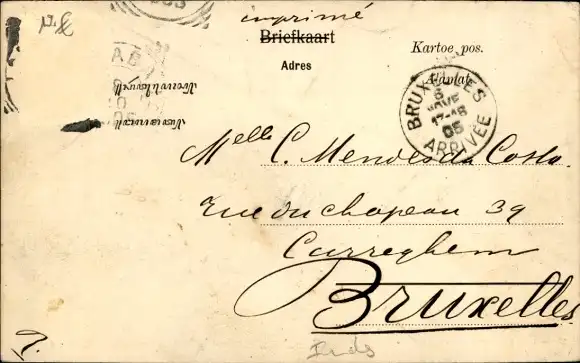 imprimé
Briefkaart
Kartoe pos.
Adres
Alamat
BRUXELLES
6
NOVE
17-18
05
ARRIVÉE
Melle C. Mendes da Costa.
Rue du chapeau 39
Curreghem
Bruxelles